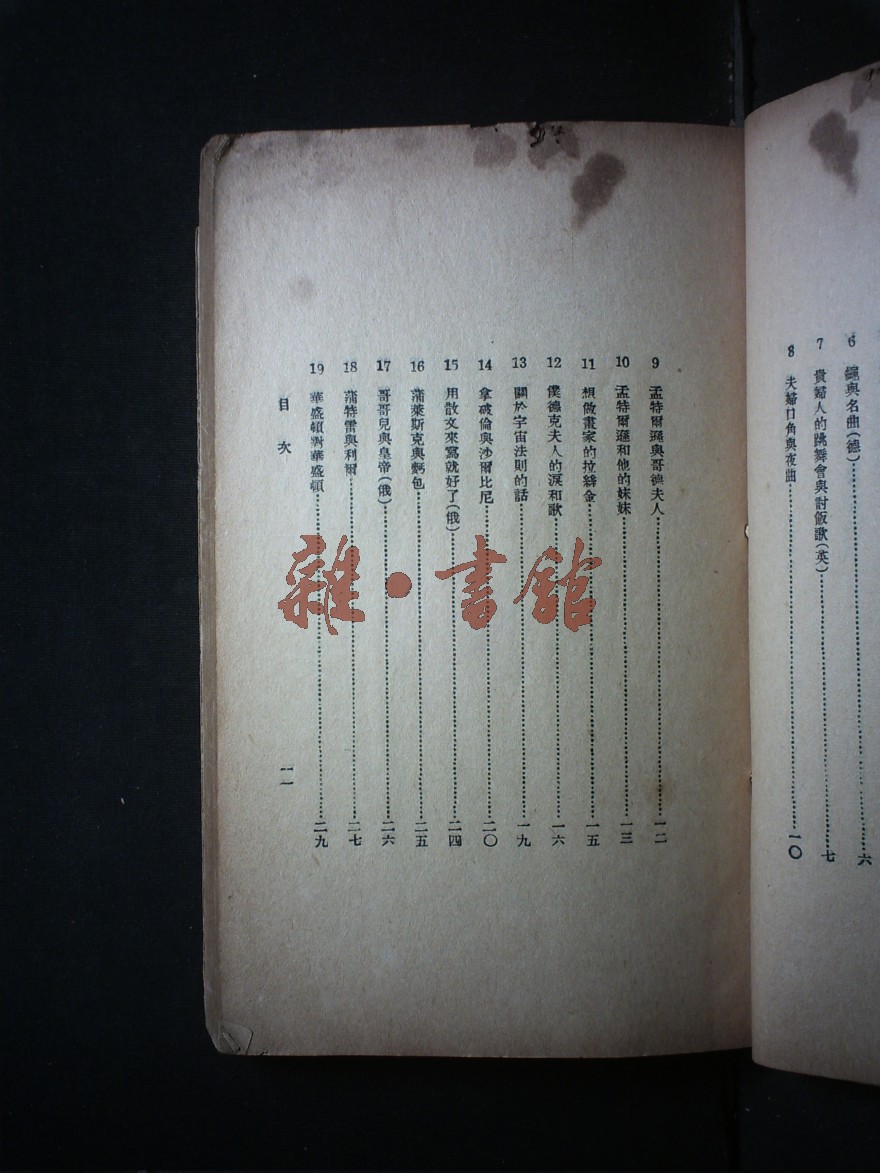 6 繩與名曲(德)……六
7 貴婦人的跳舞會與討飯歌(英)……七
8 夫婦口角與夜曲……一〇
9 孟特爾遜與哥德夫人……一二
10 孟特爾遜和他的妹妹……一三
11 想做畫家的拉絲金……一五
12 僕德克夫人的淚和歌……一六
13 關於宇宙法則的話……一九
14 拿破倫與沙爾比尼……二〇
15 用散文來寫就好了(俄)……二四
16 蒲萊斯克與麪包……二五
17 哥哥兒與皇帝(俄)……二六
18 蒲特雷與利爾……二七
19 華盛頓對華盛頓……二九
目次
二
雜·書館